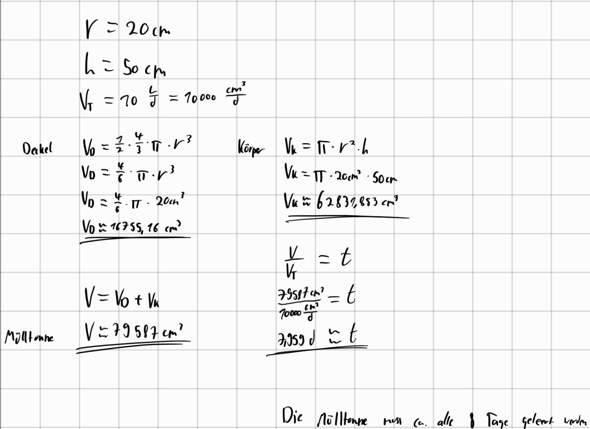 r = 20cm
h = 50cm
V_T = 10 L/d = 10000 cm³/d
Deckel
V_D = 1/2 · 4/3 · π · r³
V_D = 4/6 · π · r³
V_D = 4/6 · π · 20cm³
V_D ≈ 16755,16 cm³
Körper
V_K = π · r² · h
V_K = π · 20cm² · 50cm
V_K ≈ 62831,853 cm³
V/V_T = t
79587cm³ / 10000 cm³/d = t
7,959 d ≈ t
Mülltonne
V = V_D + V_K
V ≈ 79587cm³
Die Mülltonne muss ca. alle Tage geleert werden